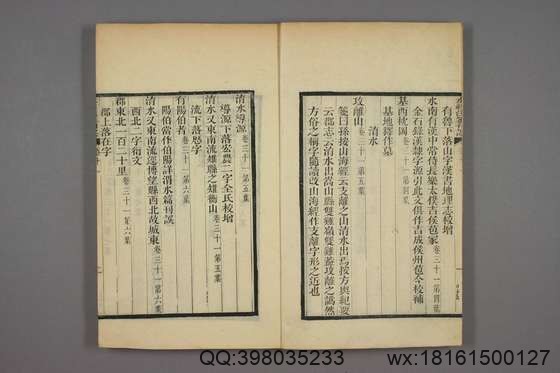 有魯下落山字漢書地理志校增
水南有漢中常侍長樂太僕吉侯苞冢卷三十一第四葉
金石錄漢隸字源引此文俱作吉成侯州苞今校補
基西枕岡卷三十一第四葉
基地錄作墓
清水
攻離山卷三十一第五葉
箋曰孫按山海經云支離之山清水出焉按方輿紀要
云郡志云清水出嵩山縣雙雞嶺雙雞蓋攻離之譌然
方俗之稱字隨讀改山海經作支離字形之近也
清水導源卷三十一第五葉
導源下落宏農二字全氏校增
清水又東南流雉縣之雉衡山卷三十一第五葉
流下落怒字
有陽伯者卷三十一第六葉
陽伯當作伯陽詳渭水篇刊誤
清水又東南流逕博望縣西北故城東卷三十一第六葉
西北二字衍文
郡東北一百二十里卷三十一第六葉
郡上落在字
QQ:398035233
wx:18161500127